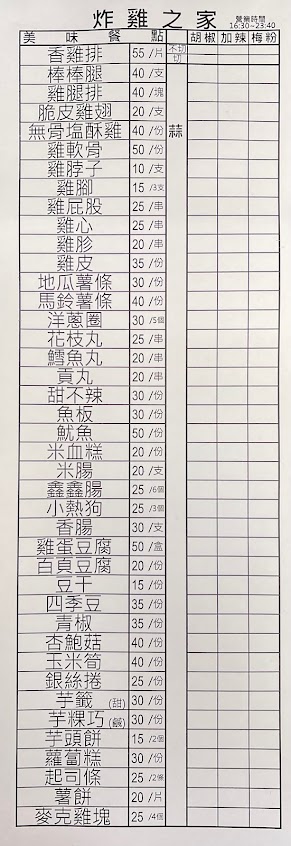 炸雞之家 營業時間 16:30~23:40
美味餐點 胡椒 加辣 梅粉
香雞排 55/片 不切 切
棒棒腿 40/支
雞腿排 40/塊
脆皮雞翅 20/支
無骨塩酥雞 40/份 蒜
雞軟骨 50/份
雞脖子 10/支
雞腳 15/3支
雞屁股 25/串
雞心 25/串
雞胗 20/串
雞皮 35/份
地瓜薯條 30/份
馬鈴薯條 40/份
洋蔥圈 30/5個
花枝丸 25/串
鱈魚丸 20/串
貢丸 20/串
甜不辣 30/份
魚板 30/份
魷魚 50/份
米血糕 20/份
米腸 20/支
鑫鑫腸 25/6個
小熱狗 25/3個
香腸 30/支
雞蛋豆腐 50/盒
百頁豆腐 20/份
豆干 15/份
四季豆 35/份
青椒 35/份
杏鮑菇 40/份
玉米筍 40/份
銀絲捲 25/份
芋籤(甜) 30/份
芋粿巧(鹹) 30/份
芋頭餅 15/2個
蘿蔔糕 30/份
起司條 25/2條
薯餅 20/片
麥克雞塊 25/4個